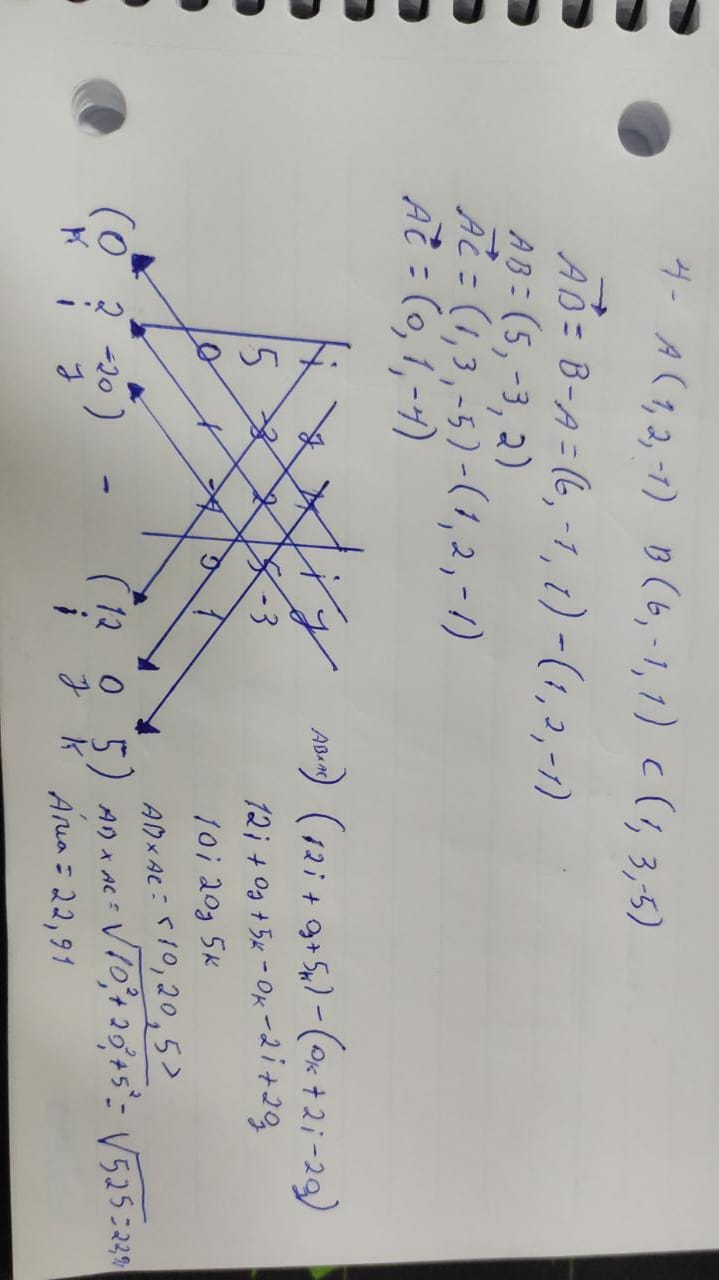 4- A(1,2,-1) B(6,-1,1) C(1,3,-5)
AB= B-A=(6,-1,1)-(1,2,-1)
AB=(5,-3,2)
AC=(1,3,-5)-(1,2,-1)
AC=(0,1,-4)
i y k i y
5 -3 2 5 -3
0 1 -4 0 1
(0 2 -20) - (12 0 5)
k i y i y k
AB×AC) (12i+0y+5k)-(0k+2i-20y)
12i+0y+5k-0k-2i+20y
10i 20y 5k
AB×AC=<10,20,5>
AB×AC=√10²+20²+5²=√525=22,91
Área=22,91